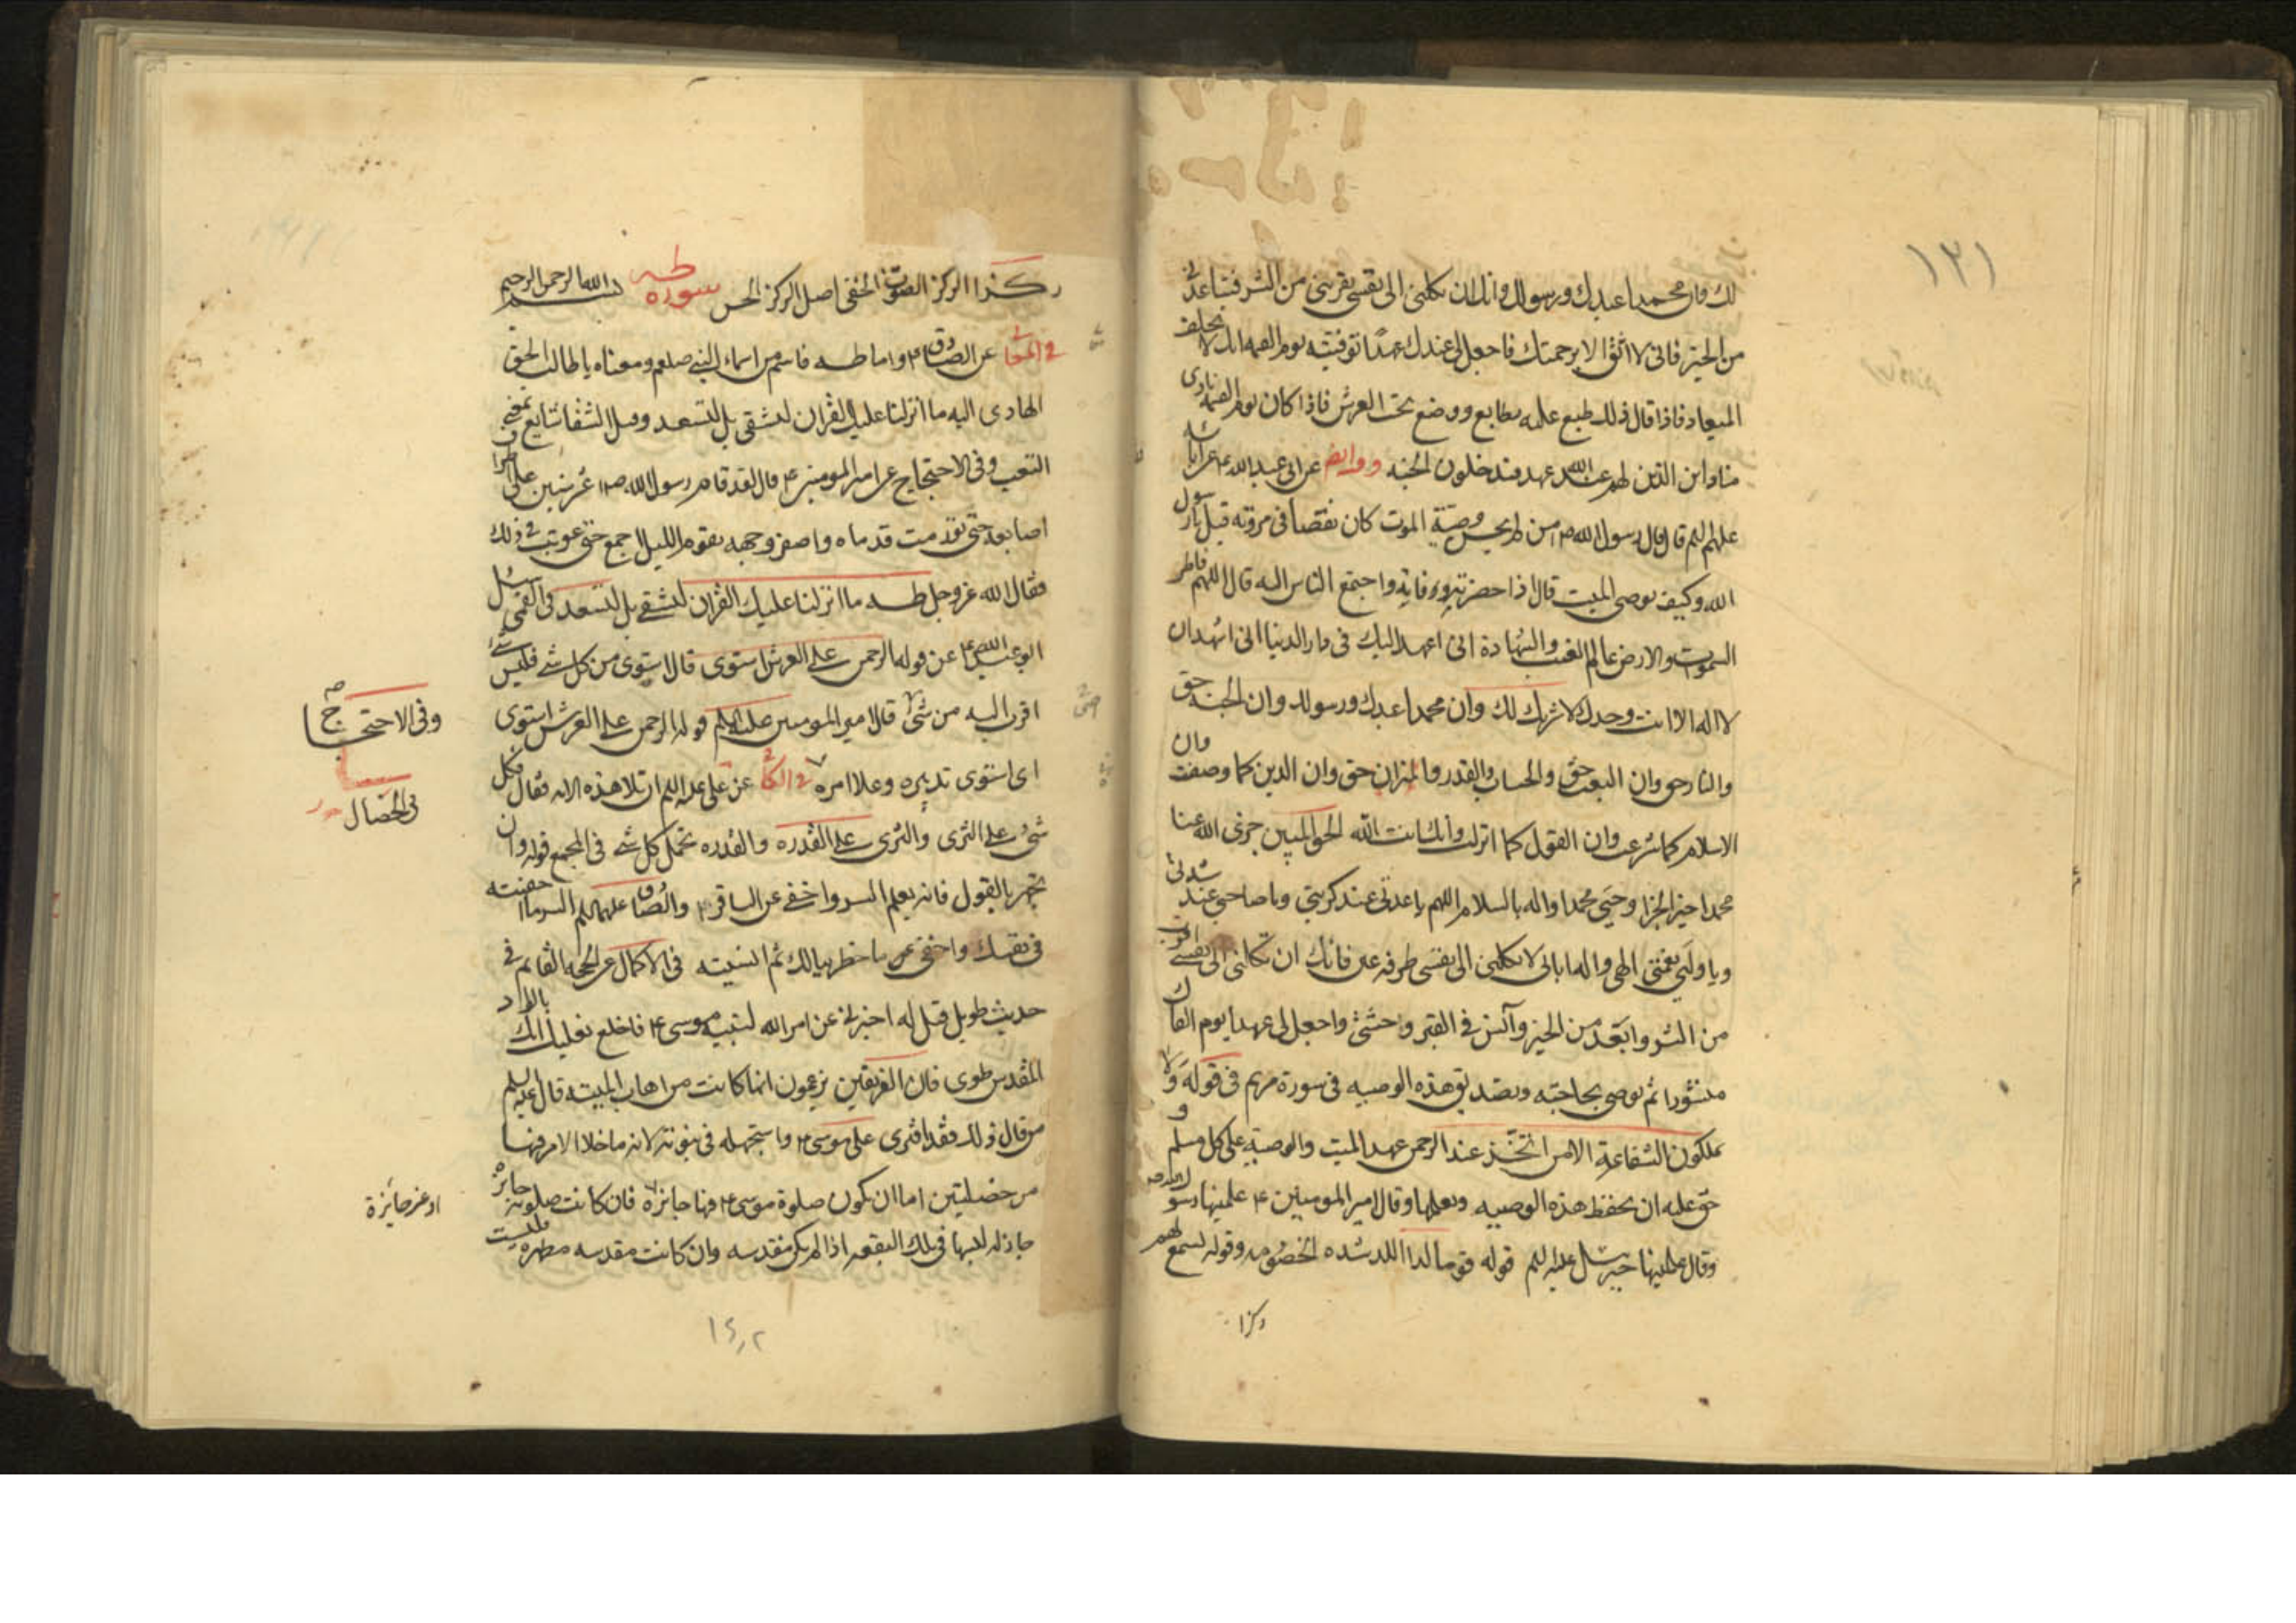 ١٣١
لك وان محمدا عبدك ورسولك وانك ان تكلني الى نفسي تقربني من الشر وتباعدني
من الخير فاني لا اثق الا برحمتك فاجعل لي عندك عهدا توفنيه يوم القيمة انك لا تخلف
الميعاد فاذا قال ذلك طبع عليه بطابع ووضع تحت العرش فاذا كان يوم القيمة نادى
مناد اين الذين لهم عند الله عهد فيدخلون الجنة عن ابي عبد الله ع عن ابائه
عليهم السلم قال قال رسول الله ص من لم يحسن وصيته الموت كان نقصا في مروته قيل يا رسول
الله وكيف يوصي الميت قال اذا حضرته وفاته واجتمع الناس اليه قال اللهم فاطر
السموات والارض عالم الغيب والشهادة اني اعهد اليك في دار الدنيا اني اشهد ان
لا اله الا انت وحدك لا شريك لك وان محمدا عبدك ورسولك وان الجنة حق
والنار حق وان البعث حق والحساب والقدر والميزان حق وان الدين كما وصفت وان
الاسلام كما شرعت وان القول كما انزلت وانك انت الله الحق المبين جزى الله عنا
محمدا خير الجزا وحيى محمدا واله بالسلام اللهم يا عدتي عند كربتي ويا صاحبي عند شدتي
ويا وليي نعمتي الهي واله ابائي لا تكلني الى نفسي طرفة عين فانك ان تكلني الى نفسي اقرب
من الشر وابعد من الخير وآنس في القبر وحشتي واجعل لي عهدا يوم القاك
منشورا ثم يوصي بحاجته وتصديق هذه الوصية في سورة مريم في قوله ولا
يملكون الشفاعة الا من اتخذ عند الرحمن عهد الميت والوصية على كل مسلم و
حق عليه ان يحفظ هذه الوصية ويعلمها وقال امير المومنين ع علمنيها رسول الله ص
وقال علمنيها جبرئيل عليه السلم قوله قوما لدا اللد شدة الخصومة وقوله تسمع لهم
ركزا
ركزا الركز الصوت الخفي اصل الركز الحس سورة طه بسم الله الرحمن الرحيم
في عن الصادق ع واما طه فاسم من اسماء النبي صلعم ومعناه يا طالب الحق
الهادي اليه ما انزلنا عليك القران لتشقى بل لتسعد وقيل الشقا شايع بمعنى
التعب وفي الاحتجاج عن امير المومنين ع قال لقد قام رسول الله ص عشر سنين على اطراف
اصابعه حتى تقدمت قدماه واصفر وجهه يقوم الليل اجمع حتى عوتب في ذلك
فقال الله عز وجل طه ما انزلنا عليك القران لتشقى بل لتسعد في القمي سئل
ابو عبد الله ع عن قوله الرحمن على العرش استوى قال استوى من كل شي فليس شي
اقرب اليه من شي قال امير المومنين عليه السلم قوله الرحمن على العرش استوى
اي استوى تدبيره وعلا امره في الكا عن علي عليه السلم ان تلا هذه الاية فقال فكل
شي على الثرى والثرى على القدرة والقدرة تحمل كل شي في المجمع قوله وان
تجهر بالقول فانه يعلم السر واخفى عن الباقر ع والصادق عليهما السلم السر ما اخفيته
في نفسك واخفى ما خطر ببالك ثم انسيته في الاكمال عن الحجة القائم في
حديث طويل قيل له اخبرني عن امر الله لنبيه موسى ع فاخلع نعليك انك بالواد
المقدس طوى فان الفريقين يزعمون انها كانت من اهاب الميتة قال عليه السلم
من قال ذلك فقد افترى على موسى ع واستجهله في نبوته لانه ما خلا الامر فيها
من خصلتين اما ان يكون صلوة موسى ع فيها جايزة فان كانت صلوته جائزة
جاز له لبسها في تلك البقعة اذا لم يكن مقدسة وان كانت مقدسة مطهرة فليست
وفي الاحتجاج ص
في الخصال
او غير جايزة